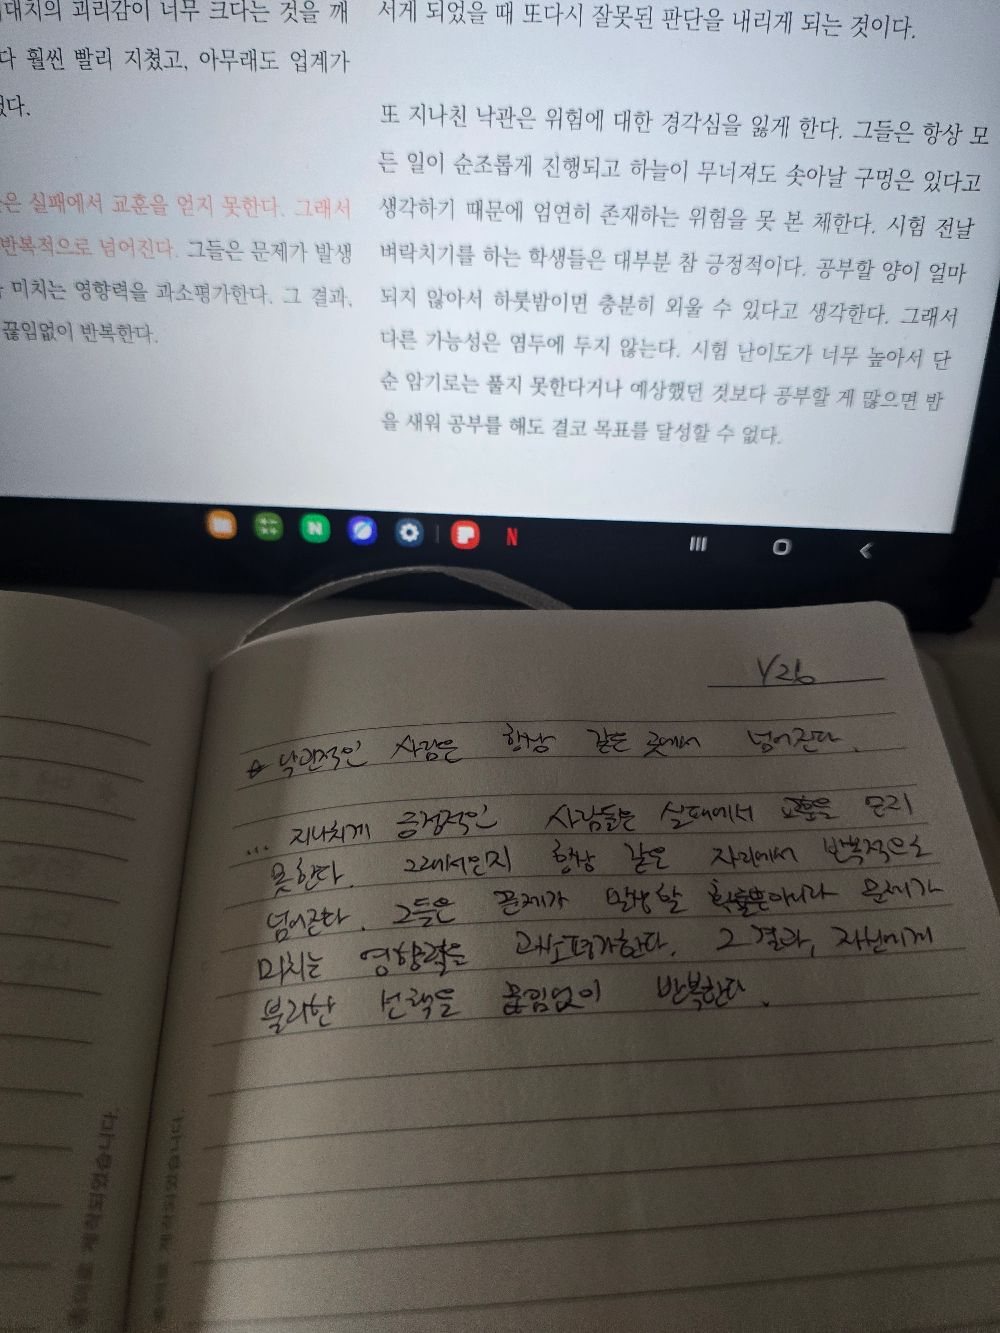 대치의 괴리감이 너무 크다는 것을 깨
다 훨씬 빨리 지쳤고, 아무래도 업계가
었다.
은 실패에서 교훈을 얻지 못한다. 그래서
반복적으로 넘어진다. 그들은 문제가 발생
미치는 영향력을 과소평가한다. 그 결과,
끊임없이 반복한다.
서게 되었을 때 또다시 잘못된 판단을 내리게 되는 것이다.
또 지나친 낙관은 위험에 대한 경각심을 잃게 한다. 그들은 항상 모
든 일이 순조롭게 진행되고 하늘이 무너져도 솟아날 구멍은 있다고
생각하기 때문에 엄연히 존재하는 위험을 못 본 체한다. 시험 전날
벼락치기를 하는 학생들은 대부분 참 긍정적이다. 공부할 양이 얼마
되지 않아서 하룻밤이면 충분히 외울 수 있다고 생각한다. 그래서
다른 가능성은 염두에 두지 않는다. 시험 난이도가 너무 높아서 단
순 암기로는 풀지 못한다거나 예상했던 것보다 공부할 게 많으면 밤
을 새워 공부를 해도 결코 목표를 달성할 수 없다.
N
N
1/26
☆ 낙관적인 사람은 항상 같은 곳에서 넘어진다.
... 지나치게 긍정적인 사람들은 실패에서 교훈을 얻지
못한다. 그래서인지 항상 같은 자리에서 반복적으로
넘어진다. 그들은 문제가 발생할 확률뿐아니라 문제가
미치는 영향력을 과소평가한다. 그 결과, 자신에게
불리한 선택을 끊임없이 반복한다.
로 제작되었습니다.
로 제작되었습니다.